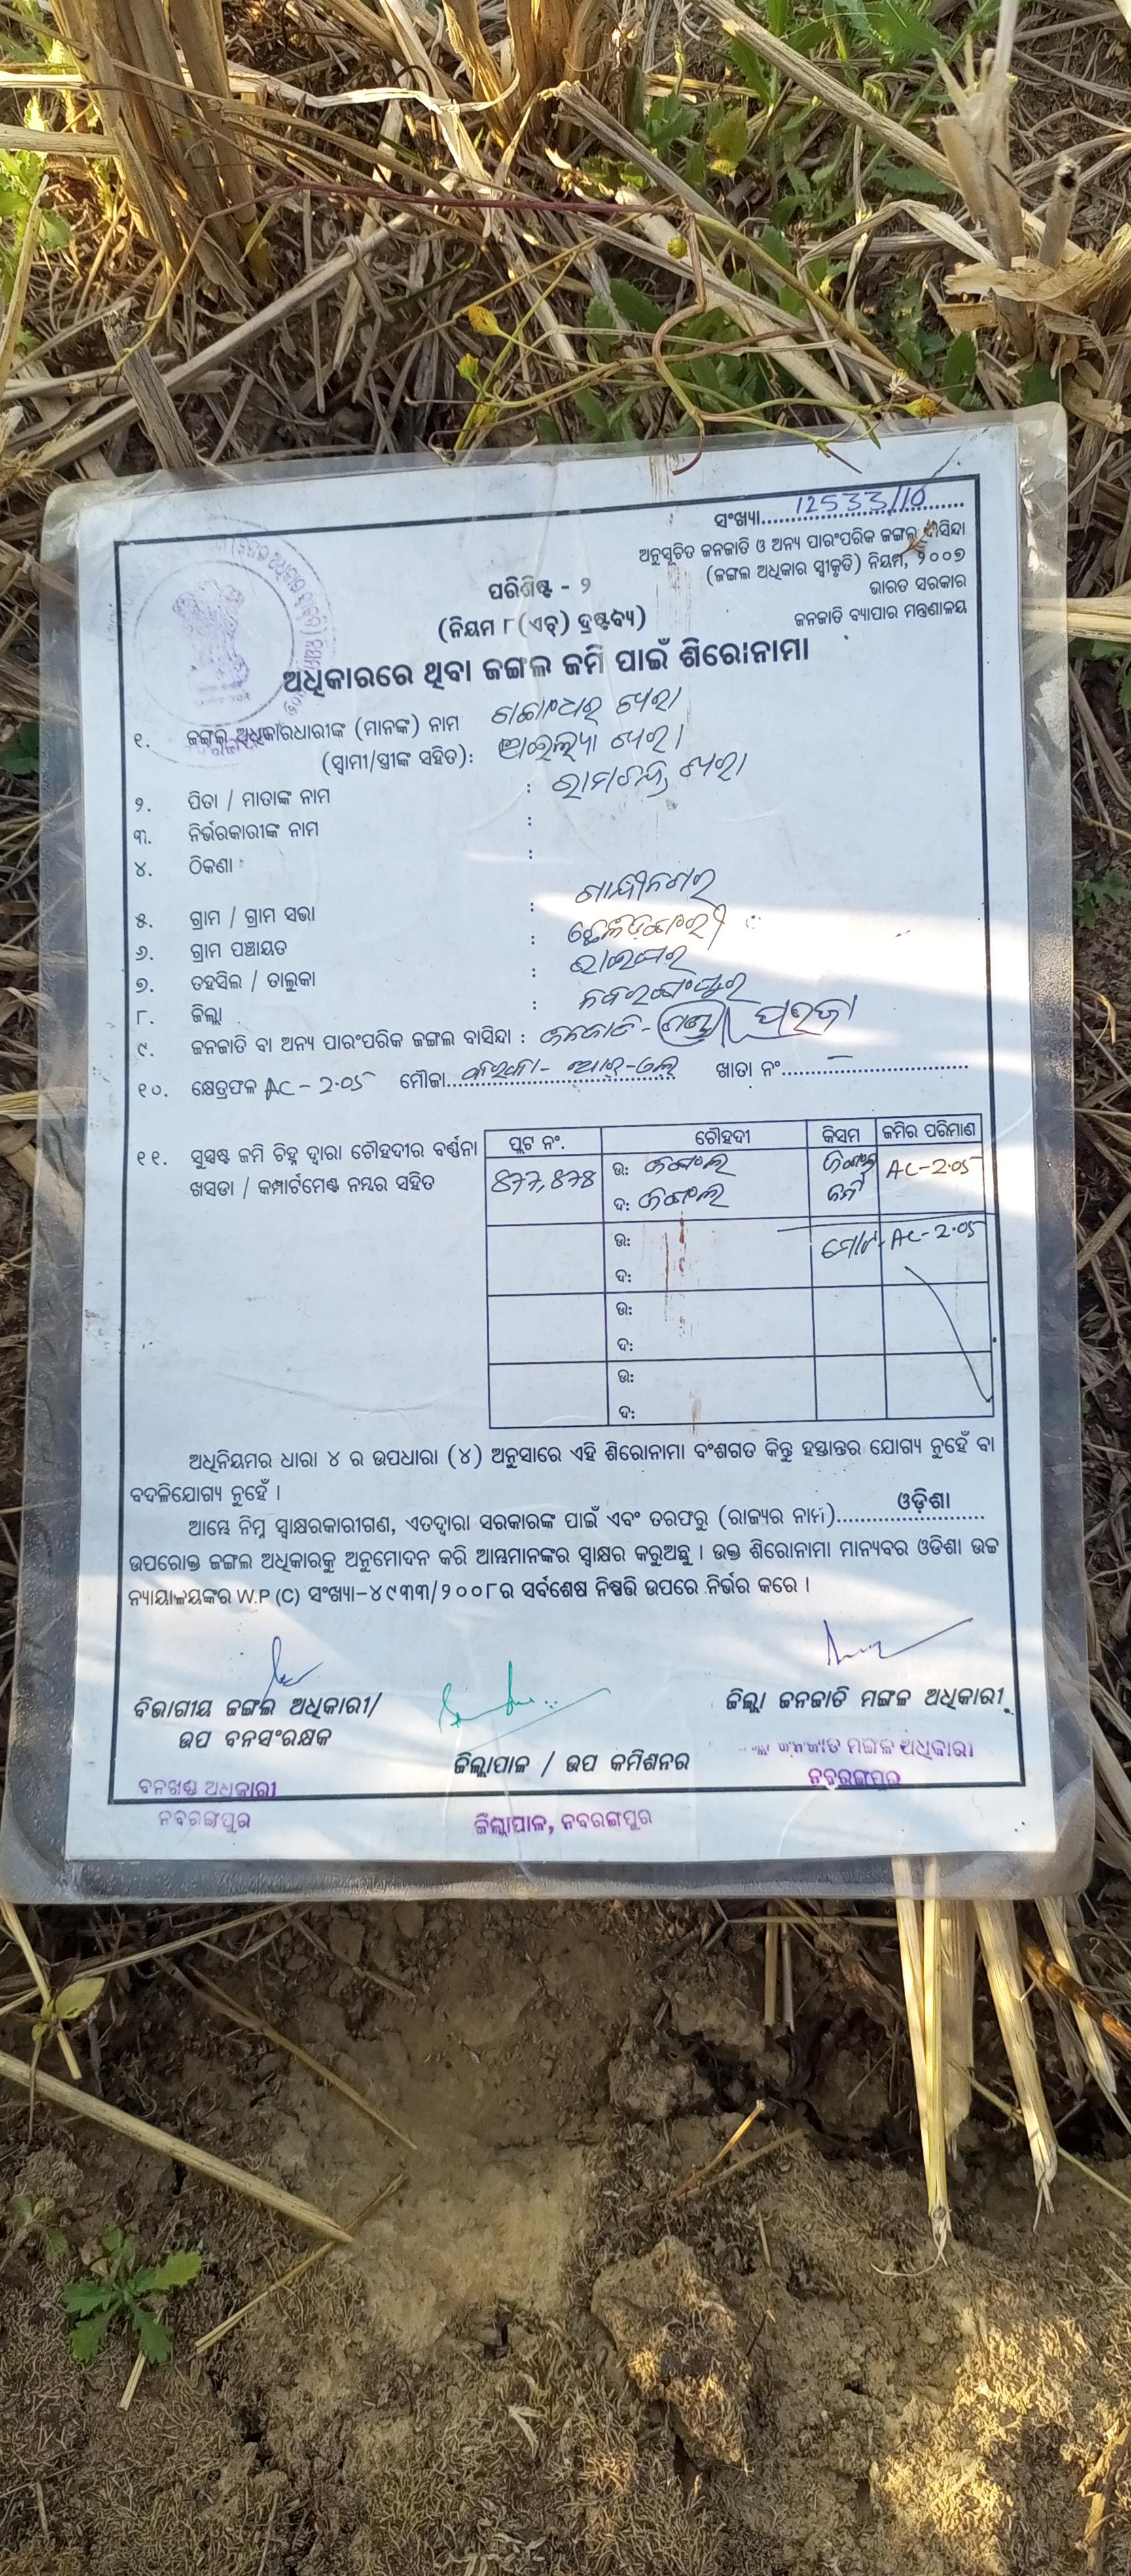 ସଂଖ୍ୟା.......12533/10.......
ଅନୁସୂଚିତ ଜନଜାତି ଓ ଅନ୍ୟ ପାରଂପରିକ ଜଙ୍ଗଲ ବାସିନ୍ଦା
(ଜଙ୍ଗଲ ଅଧିକାର ସ୍ୱୀକୃତି) ନିୟମ, ୨୦୦୭
ଭାରତ ସରକାର
ଜନଜାତି ବ୍ୟାପାର ମନ୍ତ୍ରଣାଳୟ
ପରିଶିଷ୍ଟ - ୨
(ନିୟମ ୮(ଏଚ୍) ଦ୍ରଷ୍ଟବ୍ୟ)
ଅଧିକାରରେ ଥିବା ଜଙ୍ଗଲ ଜମି ପାଇଁ ଶିରୋନାମା
୧. ଜଙ୍ଗଲ ଅଧିକାରଧାରୀଙ୍କ (ମାନଙ୍କ) ନାମ
(ସ୍ୱାମୀ/ସ୍ତ୍ରୀଙ୍କ ସହିତ):
୨. ପିତା / ମାତାଙ୍କ ନାମ :
୩. ନିର୍ଭରକାରୀଙ୍କ ନାମ :
୪. ଠିକଣା :
୫. ଗ୍ରାମ / ଗ୍ରାମ ସଭା : ଗାନ୍ଧୀନଗର
୬. ଗ୍ରାମ ପଞ୍ଚାୟତ :
୭. ତହସିଲ / ତାଲୁକା : ରାଇଘର
୮. ଜିଲ୍ଲା : ନବରଙ୍ଗପୁର
୯. ଜନଜାତି ବା ଅନ୍ୟ ପାରଂପରିକ ଜଙ୍ଗଲ ବାସିନ୍ଦା : ଜନଜାତି -
୧୦. କ୍ଷେତ୍ରଫଳ AC - 2.05 ମୌଜା.......... ଖାତା ନଂ..........
୧୧. ସୁସ୍ପଷ୍ଟ ଜମି ଚିହ୍ନ ଦ୍ୱାରା ଚୌହଦୀର ବର୍ଣ୍ଣନା
ଖସଡା / କମ୍ପାର୍ଟମେଣ୍ଟ ନମ୍ବର ସହିତ
ପ୍ଲଟ ନଂ. ଚୌହଦୀ କିସମ ଜମିର ପରିମାଣ
877,878 ଉ: ଜଙ୍ଗଲ ଜଙ୍ଗଲ AC-2.05
ଦ: ଜଙ୍ଗଲ ଜମି
ଉ: ମୋଟ- AC-2.05
ଦ:
ଉ:
ଦ:
ଉ:
ଦ:
ଅଧିନିୟମର ଧାରା ୪ ର ଉପଧାରା (୪) ଅନୁସାରେ ଏହି ଶିରୋନାମା ବଂଶଗତ କିନ୍ତୁ ହସ୍ତାନ୍ତର ଯୋଗ୍ୟ ନୁହେଁ ବା
ବଦଳିଯୋଗ୍ୟ ନୁହେଁ ।
ଆମ୍ଭେ ନିମ୍ନ ସ୍ୱାକ୍ଷରକାରୀଗଣ, ଏତଦ୍ୱାରା ସରକାରଙ୍କ ପାଇଁ ଏବଂ ତରଫରୁ (ରାଜ୍ୟର ନାମ)......ଓଡ଼ିଶା......
ଉପରୋକ୍ତ ଜଙ୍ଗଲ ଅଧିକାରକୁ ଅନୁମୋଦନ କରି ଆମ୍ଭମାନଙ୍କର ସ୍ୱାକ୍ଷର କରୁଅଛୁ । ଉକ୍ତ ଶିରୋନାମା ମାନ୍ୟବର ଓଡିଶା ଉଚ୍ଚ
ନ୍ୟାୟାଳୟଙ୍କର W.P (C) ସଂଖ୍ୟା-୪୯୩୩/୨୦୦୮ର ସର୍ବଶେଷ ନିଷ୍ପତ୍ତି ଉପରେ ନିର୍ଭର କରେ ।
ବିଭାଗୀୟ ଜଙ୍ଗଲ ଅଧିକାରୀ/
ଉପ ବନସଂରକ୍ଷକ
ଜିଲ୍ଲାପାଳ / ଉପ କମିଶନର
ଜିଲ୍ଲା ଜନଜାତି ମଙ୍ଗଳ ଅଧିକାରୀ
ବନଖଣ୍ଡ ଅଧିକାରୀ
ନବରଙ୍ଗପୁର
ଜିଲ୍ଲାପାଳ, ନବରଙ୍ଗପୁର
ଜନଜାତି ମଙ୍ଗଳ ଅଧିକାରୀ
ନବରଙ୍ଗପୁର